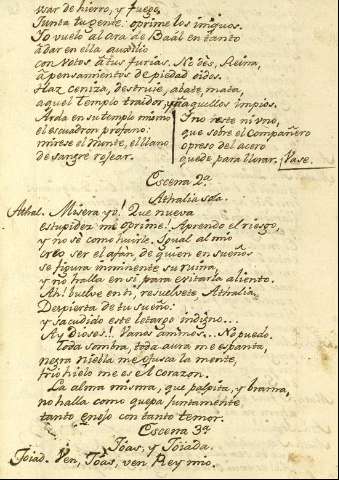 usar de hierro, y fuego,
Junta tu gente: oprime los iniquos.
Yo vuelo al Ara de Baál en tanto
à dar en ella auxilio
con votos à tus furias. No dès, Reina,
à pensamientos de piedad oidos.
Haz ceniza, destruie, abate, mata,
aquel Templo traidor, y à aquellos impios.
Arda en su templo mismo
el escuadron profano:
mirese el Monte, el llano
de sangre rojear.
Y no reste ni vno,
que sobre el Compañero
opreso del acero
quede para llorar. Vase.
Escena 2a.
Athalia sola.
Athal. Misera yo! Que nueva
estupidez me oprime! Aprendo el riesgo,
y no sè como huirle. Igual al mio
creo ser el afan, de quien en sueños
se figura inminente su ruina,
y no halla en si para evitarla aliento.
Ah! buelve en ti, resuelvete Athalia,
Despierta de tu sueño:
y sacudido este letargo indigno...
Ay Dioses! Vanos animos... No puedo.
Toda sombra, toda aura me espanta,
negra niebla me ofusca la mente,
frio hielo me es el corazon.
La alma misma, que palpita, y brama,
no halla como quepa juntamente,
tanto enojo con tanto temor.
Escena 3a.
Joas, y Joiada.
Joiad. Ven, Joas, ven Rey mio.